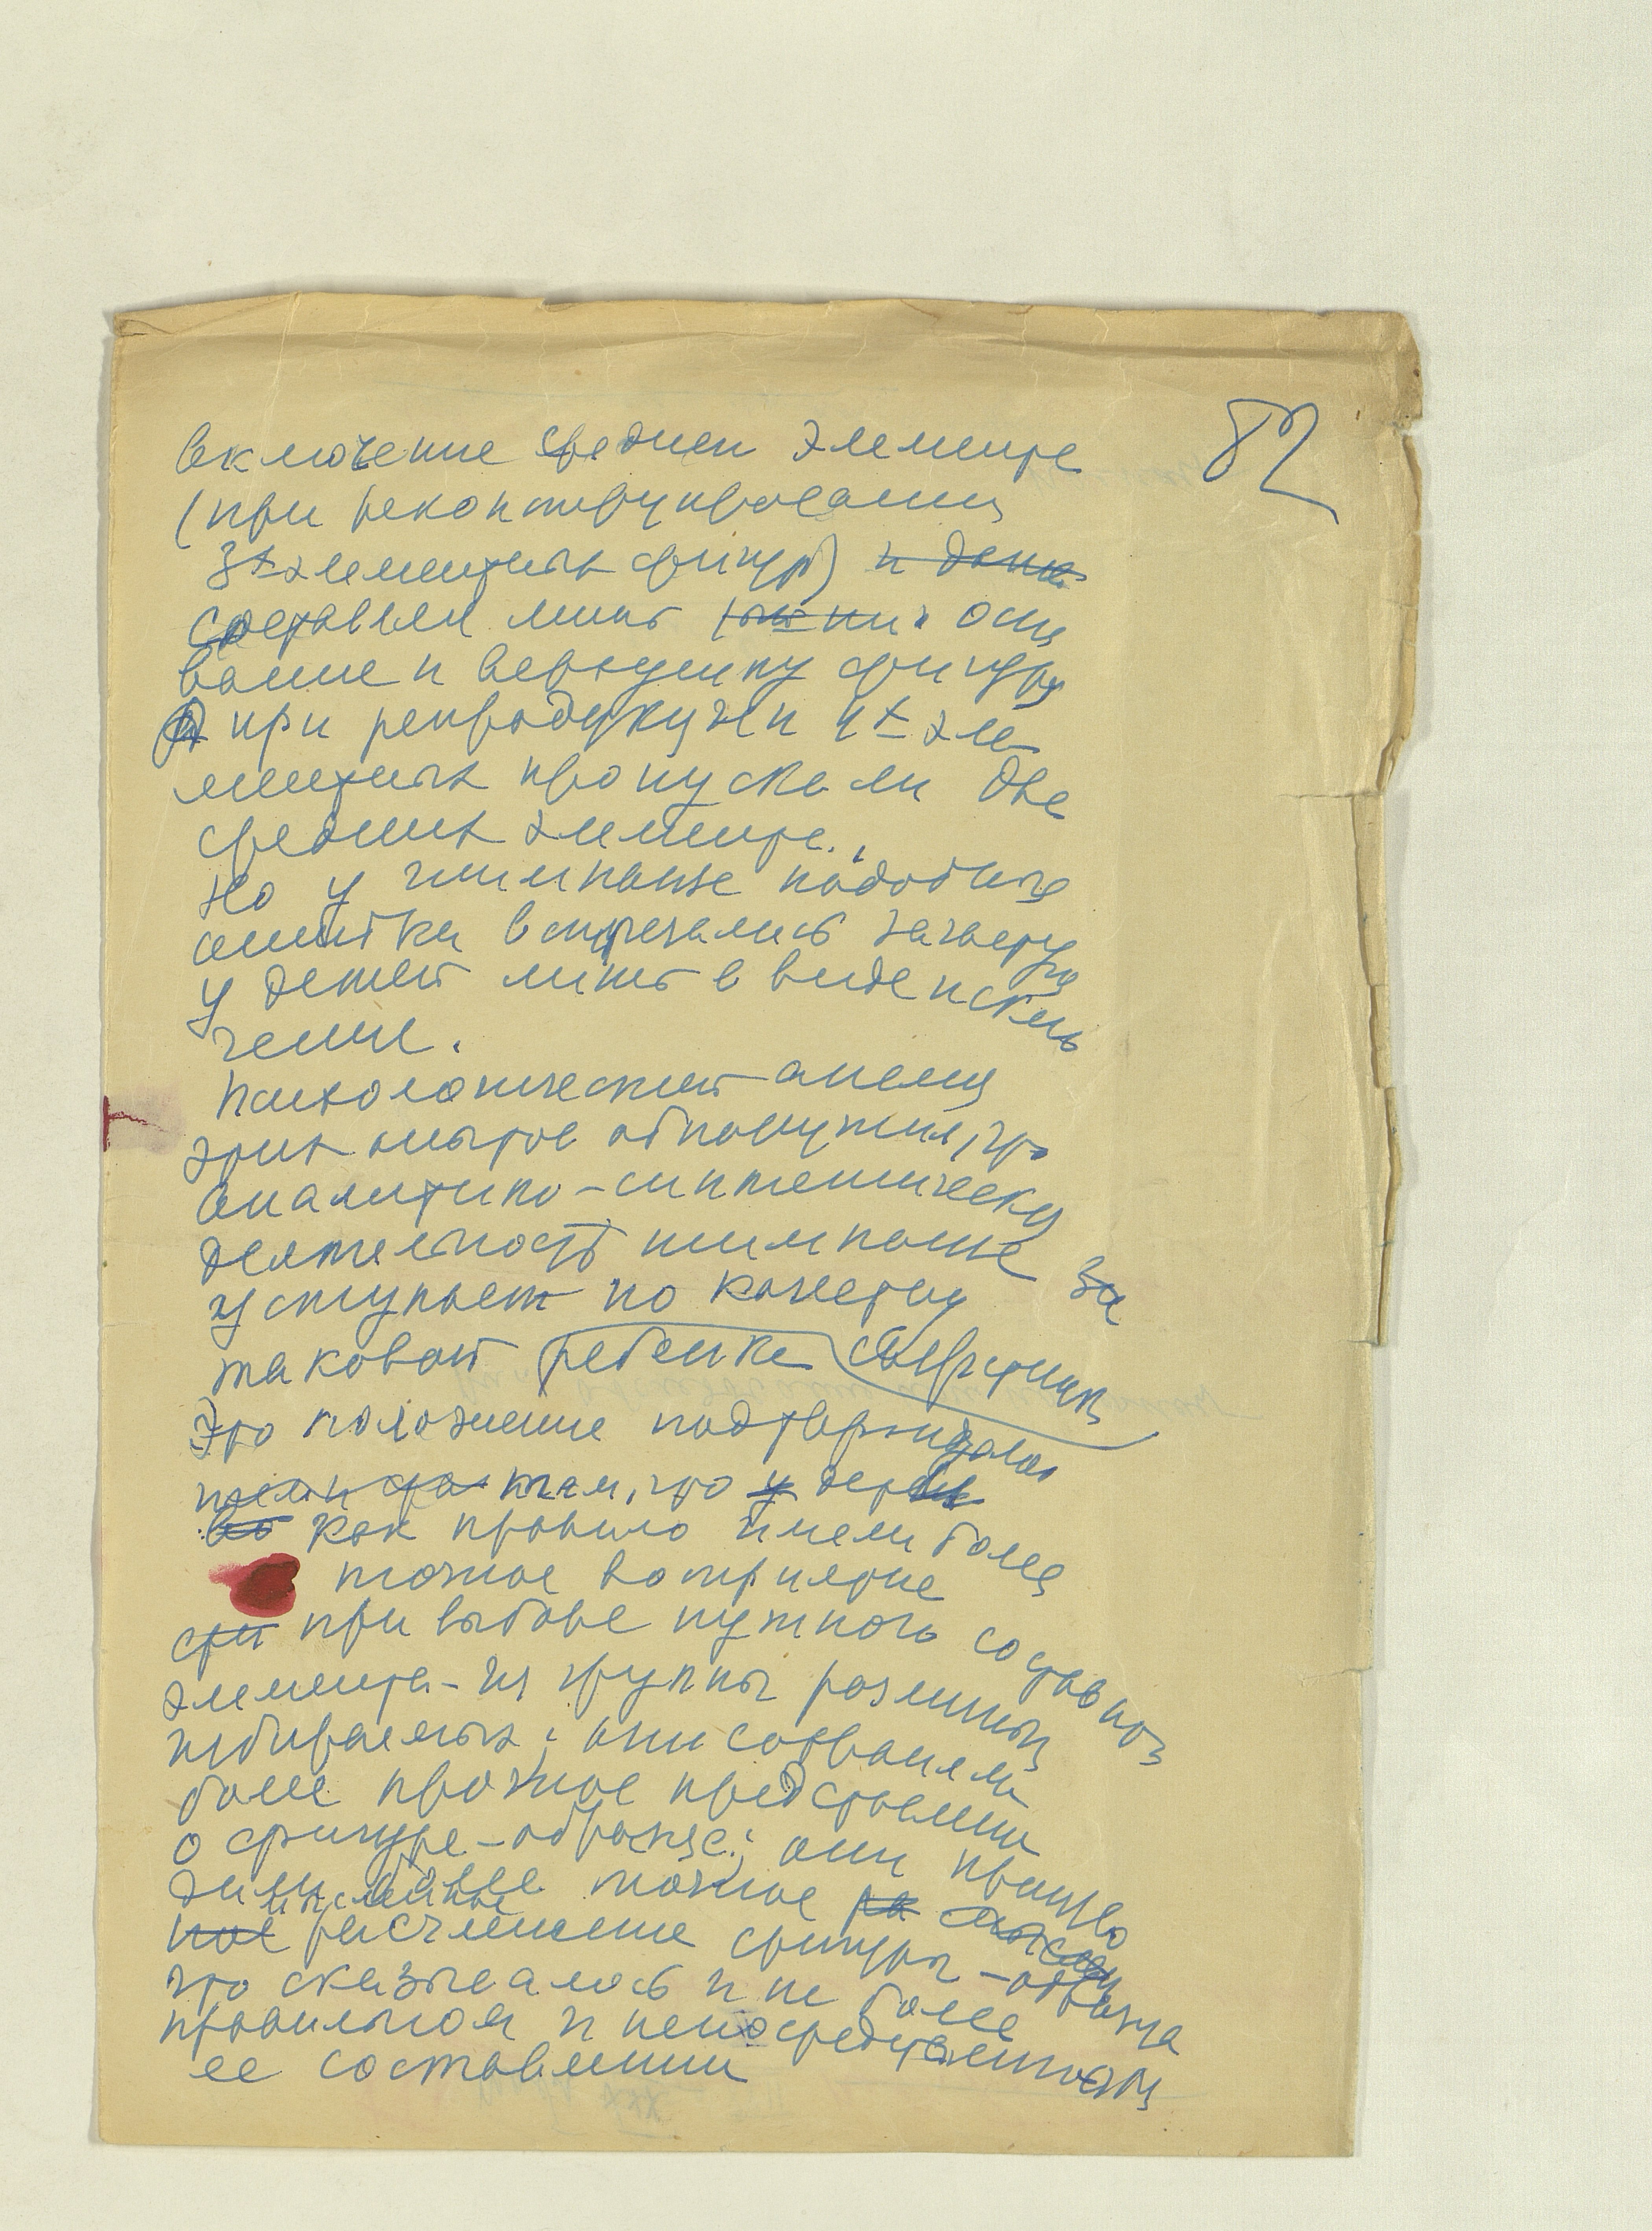 82
включение средней элемента
(при реконструировании
3х элементных фигур) и даже
составляя лишь осно
вание и верхушку фигуры
а при репродукции 4х эле-
ментных пропускали два
средних элемента.
Но у шимпанзе подобные
ошибки встречались зачастую
у детей лишь в виде исклю
чения.
Психологический анализ
этих опытов обнаружил, что
аналитико-синтетическу
деятельность шимпанзе за
уступает по качеству
таковой ребенка
Это положение подтверждалось
тем, что у дети
во как правило имели более
точное восприятие
при выборе нужного составного
элемента - из группы различных
избираемых; они сохраняли
более прочное представлении
о фигуре-образце; они производ
дили более точное ра
мысленное
ное расчленение фигуры-образца
что сказывалось и на более
правильном и непосредственном
ее составлении